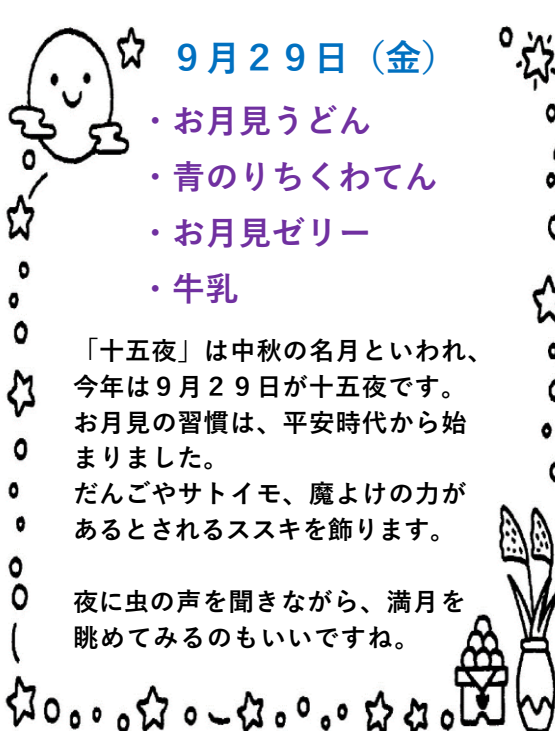 ９月２９日（金）
・お月見うどん
・青のりちくわてん
・お月見ゼリー
・牛乳
「十五夜」は中秋の名月といわれ、
今年は９月２９日が十五夜です。
お月見の習慣は、平安時代から始
まりました。
だんごやサトイモ、魔よけの力が
あるとされるススキを飾ります。
夜に虫の声を聞きながら、満月を
眺めてみるのもいいですね。